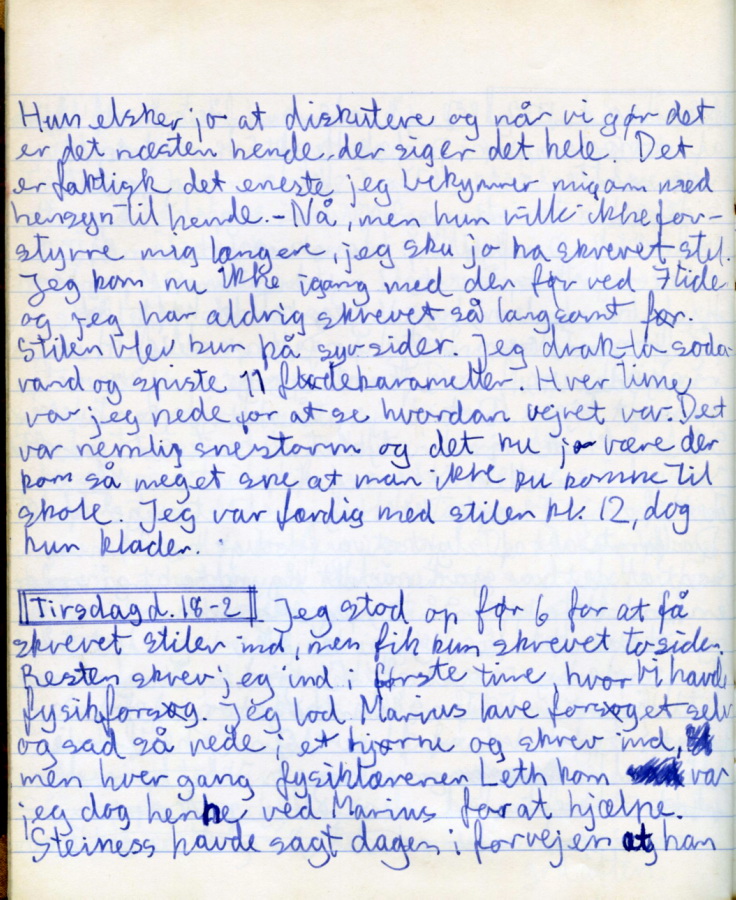 Hun elsker jo at diskutere og når vi gør det
er det næsten hende der siger det hele. Det
er faktisk det eneste jeg bekymrer mig om med
hensyn til hende. - Nå, men hun ville ikke for-
styrre mig længere, jeg sku jo ha skrevet stil.
Jeg kom nu ikke igang med den før ved 7tide
og jeg har aldrig skrevet så langsomt før.
Stilen blev kun på syv sider. Jeg drak to soda-
vand og spiste 11 flødekarameller. Hver time
var jeg nede for at se hvordan vejret var. Det
var nemlig snestorm og det ku jo være der
kom så meget sne at man ikke ku komme til
skole. Jeg var færdig med stilen kl. 12, dog
kun kladen.
Tirsdag d. 18-2 Jeg stod op før 6 for at få
skrevet stilen ind, men fik kun skrevet to sider.
Resten skrev jeg ind i første time, hvor vi havde
fysikforsøg. Jeg lod Marius lave forsøget selv
og sad så nede i et hjørne og skrev ind,
men hver gang fysiklæreren Leth kom var
jeg dog henne ved Marius for at hjælpe.
Steiness havde sagt dagen i forvejen at han